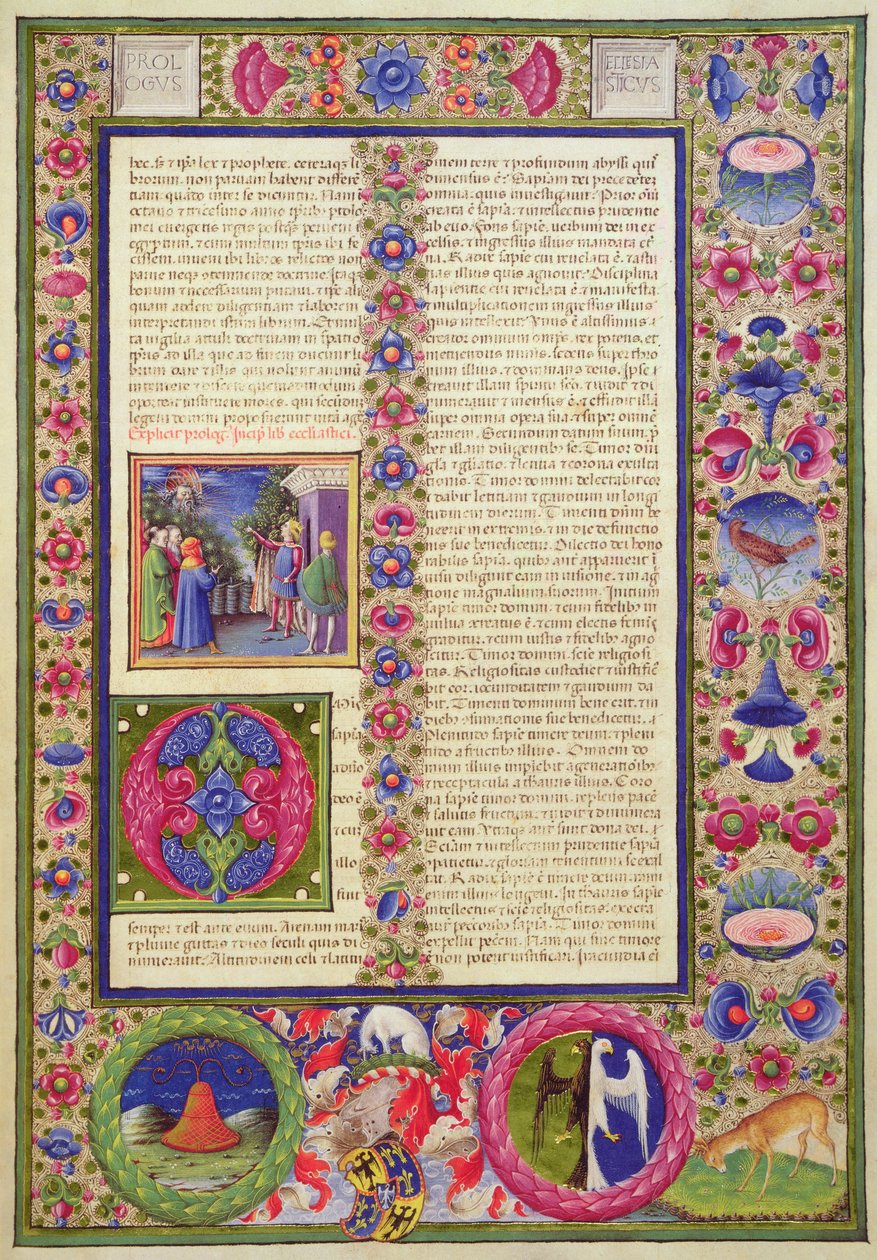 PROL
OGVS
ECLESIA
STICVS
hec. s; & ip̄a lex & prophete. ceteraq; li
brorum. non paruam habent differē
tiam. quādo inter se dicuntur. Nam i
octauo & tricesimo anno tp̄rib; ptolo
mei euergetis regis postq̄; perueni ī
egyptum. & cum multum tp̄ris ibi fe
cissem. inueni ibi libros relictos non
parue neq; doctrine. Itaq;
bonum & necessarium putaui. & ip̄e ali
quam addere diligentiam & laborem
interpretandi istum librum. Et mul
ta uigilia attuli doctrinam in spatio
tp̄ris ad illa que ad finem ducunt li
brum dare & illis qui uolunt animum
intendere & discere quemadmodum
oporteat instituere mores. qui secūdum
legem domini proposuerunt uitā age
Explicit prolog. Incip lib ecclastici.
O
sapīa
a dn̄o
deo ē
& cum
illo
fuit
semper & est ante euum. Arenam mari
& pluuie guttas & dies seculi quis di
numerauit. Altitudinem celi & latitu
dinem terre & profundum abyssi quis
dimensus ē. Sapīam dei precedētem
omnia. quis inuestigauit. Prior oīm
creata ē sapīa. & intellectus prudentie
ab euo. Fons sapīe. uerbum dei in ex
celsis. & ingressus illius mandata et̄
na. Radix sapīe cui reuelata ē. & astu
tias illius quis agnouit. Disciplina
sapientie cui reuelata ē & manifesta.
& multiplicationem ingressus illius
quis intellexit. Vnus ē altissimus.
creator omnium omnips. rex potens. et
metuendus nimis. sedens super thro
num illius. & dominans deus. Ipse
creauit illam spiritu sc̄o. & uidit & di
numerauit & mensus ē. & effudit illā
super omnia opera sua. & super omnē
carnem. Secundum datum suum. p̄
bet illam diligentibus se. Timor dn̄i
gl̄a & gl̄iatio. & letitia & corona exulta
tionis. Timor domini delectabit cor
& dabit letitiam & gaudium in longi
tudinem dierum. Timenti dn̄m be
ne erit in extremis. & in die defunctio
nis sue benedicetur. Dilectio dei hono
rabilis sapīa. quibus aut̄ apparuerit ī
uisu diligunt eam in uisione. & in ag
nitione magnalium suorum. Initium
sapīe timor domini. & cum fidelibus in
uulua creatus ē. & cum electis femīs
graditur. & cum iustis & fidelib; agno
scitur. Timor domini. scīe religiosi
tas. Religiositas custodiet & iustifica
bit cor. iocunditatem & gaudium da
bit. Timenti dominum bene erit. & in
dieb; sue benedicetur.
Plenitudo sapīe timere deum. & pleni
tudo a fructib; illius. Omnem do
mum illius implebit a generatiōib;
& receptacula a thesauris illius. Coro
na sapīe timor domini. replens pacē
& salutis fructum. & uidit & dinumera
uit eam. aut̄ sunt dona dei.
Scīam & intellectum prudentie sapīa
& gloriam tenentium se exal
tat. Radix sapīe ē timere deum. rami
enim illius longeui. In thesauris sapīe
intellectus & scīe religiositas. execra
tio aut̄ peccatorib; sapīa. Timor domini
expellit peccm̄. Nam qui sine timore
ē non potest iustificari. Iracundia ei